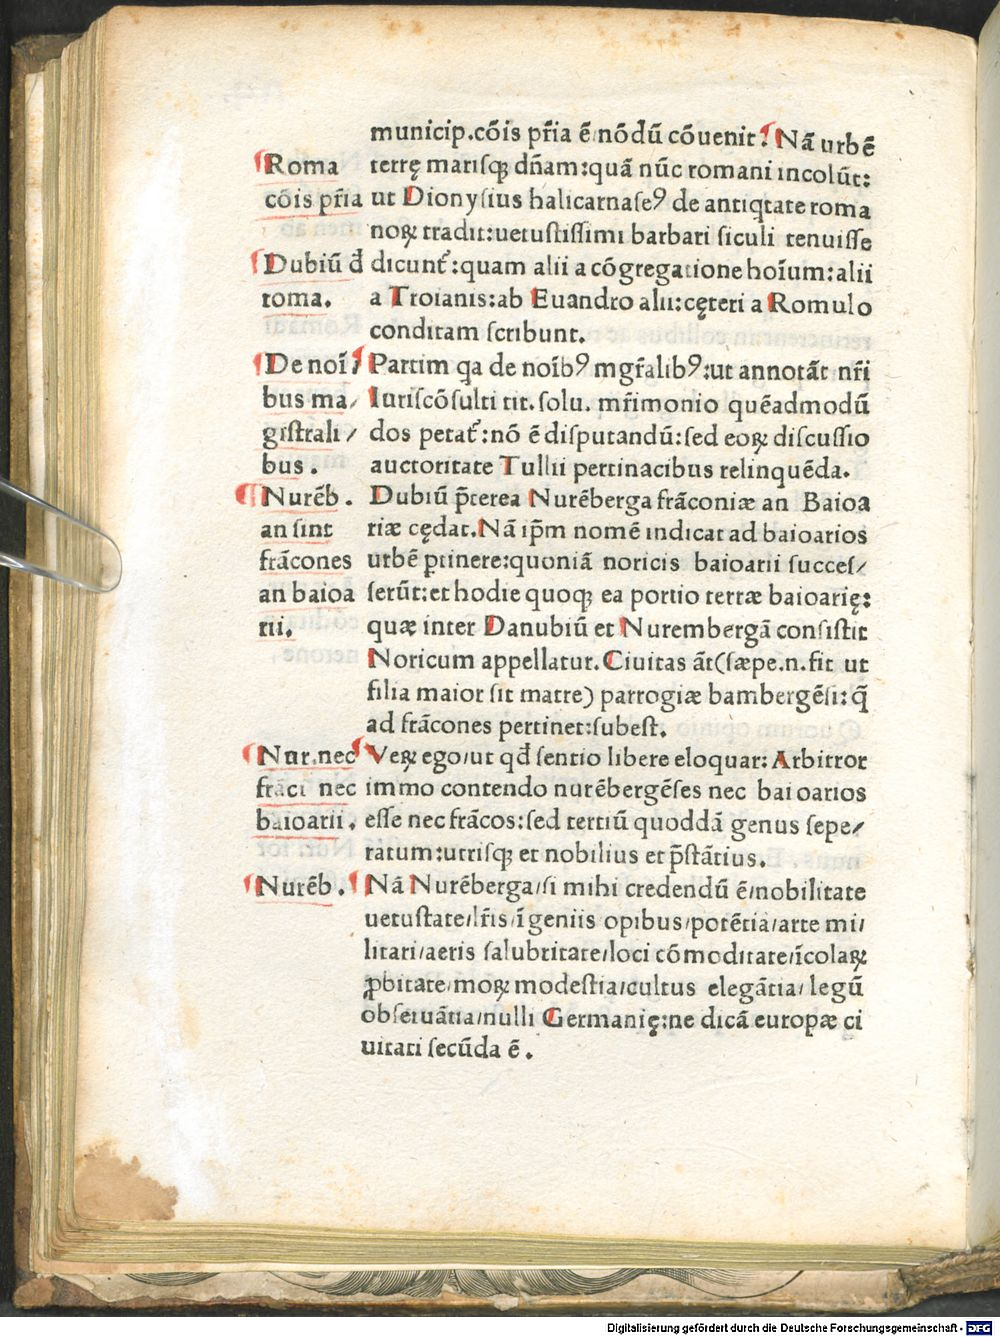 municip.cōis pr̄ia ē nōdū cōuenit. Nā urbē
terrę mariſqꝫ dn̄am:quā nūc romani incolūt:
ut Dionyſius halicarnaſeꝰ de antiqtate roma
noꝝ tradit:uetuſtiſſimi barbari ſiculi tenuiſſe
dicunt̄:quam alii a cōgregatione hoīum:alii
a Troianis:ab Euandro alii:cęteri a Romulo
conditam ſcribunt.
Partim qa de noībꝰ mgr̄alibꝰ:ut annotāt nr̄i
Iuriſcōſulti tit. ſolu. mr̄imonio quēadmodū
dos petat̄:nō ē diſputandū:ſed eoꝝ diſcuſſio
auctoritate Tullii pertinacibus relinquēda.
Dubiū p̄terea Nurēberga frāconiæ an Baioa
riæ cędat. Nā ip̄m nomē indicat ad baioarios
urbē ꝑtinere:quoniā noricis baioarii ſucceſ/
ſerūt:et hodie quoqꝫ ea portio terræ baioarię:
quæ inter Danubiū et Nurembergā conſiſtit
Noricum appellatur. Ciuitas āt(ſæpe.n.fit ut
filia maior ſit matre) parrogiæ bambergēſi:q̄
ad frācones pertinet:ſubeſt.
Veꝝ ego/ut qđ ſentio libere eloquar: Arbitror
immo contendo nurēbergēſes nec baioarios
eſſe nec frācos:ſed tertiū quoddā genus ſepe/
ratum:utriſqꝫ et nobilius et p̄ſtātius.
Nā Nurēberga/ſi mihi credendū ē/nobilitate
uetuſtate/lr̄is/īgeniis opibus/potētia/arte mi/
litari/aeris ſalubritate/loci cōmoditate/īcolaꝝ
ꝓbitate/moꝝ modeſtia/cultus elegātia/legū
obſeruātia/nulli Germanię:ne dicā europæ ci
uitati ſecūda ē.
Roma
cōis pr̄ia
Dubiū đ
roma.
De noī/
bus ma/
giſtrali/
bus.
Nurēb.
an ſint
frācones
an baioa
rii.
Nur.nec
frāci nec
baioarii.
Nurēb.
Digitalisierung gefördert durch die Deutsche Forschungsgemeinschaft - DFG